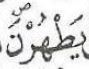 يَطْهُرْنَ